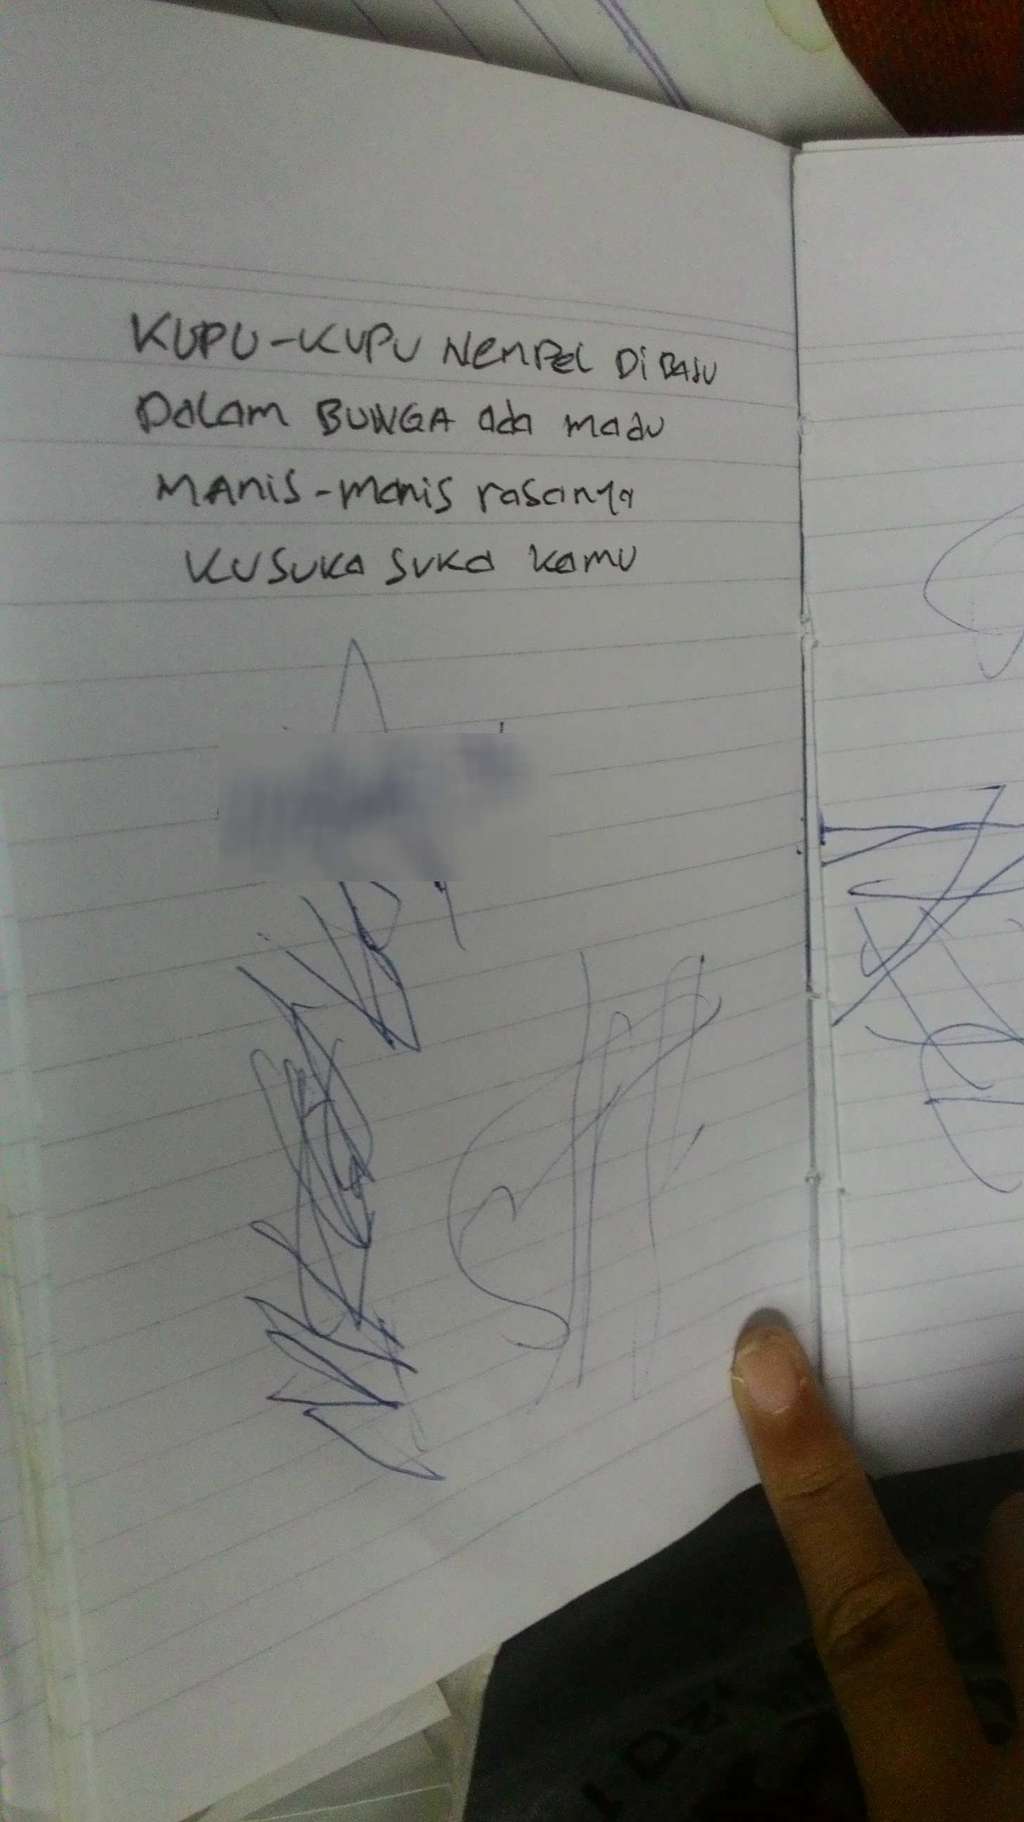 KUPU-KUPU Nempel Di BAJU
Dalam BUNGA ada madu
MANIS-manis rasanya
KUSUKA SUKA kamu